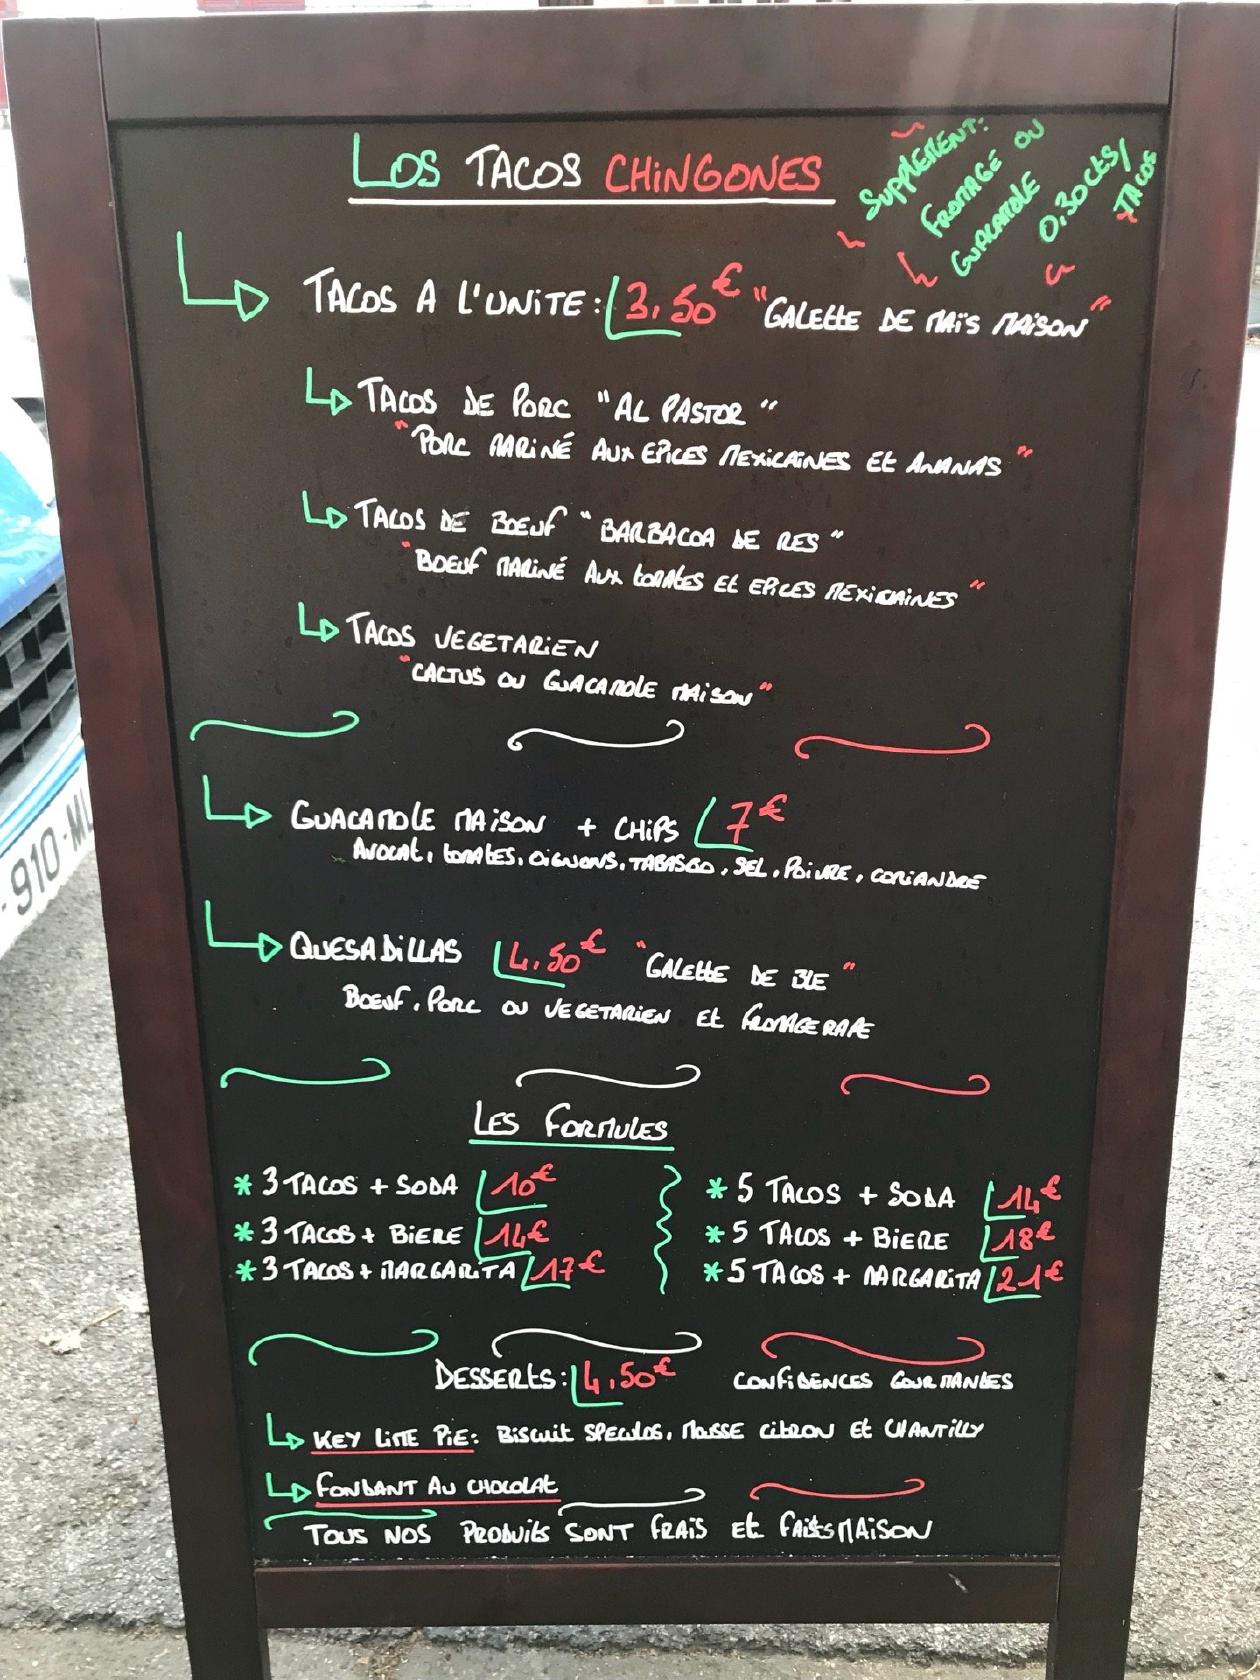 LOS TACOS CHINGONES
SUPPLEMENT:
FROMAGE OU
GUACAMOLE
0.30CTS/
TACOS
TACOS A L'UNITE: 3,50€ "GALETTE DE MAÏS MAISON"
TACOS DE PORC "AL PASTOR"
"PORC MARINÉ AUX EPICES MEXICAINES ET ANANAS"
TACOS DE BOEUF "BARBACOA DE RES"
"BOEUF MARINÉ AUX TOMATES ET EPICES MEXICAINES"
TACOS VEGETARIEN
"CACTUS OU GUACAMOLE MAISON"
GUACAMOLE MAISON + CHIPS 7€
AVOCAT, TOMATES, OIGNONS, TABASCO, SEL, POIVRE, CORIANDRE
QUESADILLAS 4,50€ "GALETTE DE BLE"
BOEUF, PORC OU VEGETARIEN ET FROMAGE RAPE
LES FORMULES
* 3 TACOS + SODA 10€
* 3 TACOS + BIERE 14€
* 3 TACOS + MARGARITA 17€
* 5 TACOS + SODA 14€
* 5 TACOS + BIERE 18€
* 5 TACOS + MARGARITA 21€
DESSERTS: 4,50€ CONFIDENCES GOURMANDES
KEY LIME PIE: BISCUIT SPECULOS, MOUSSE CITRON ET CHANTILLY
FONDANT AU CHOCOLAT
TOUS NOS PRODUITS SONT FRAIS ET FAITS MAISON
-910-ML